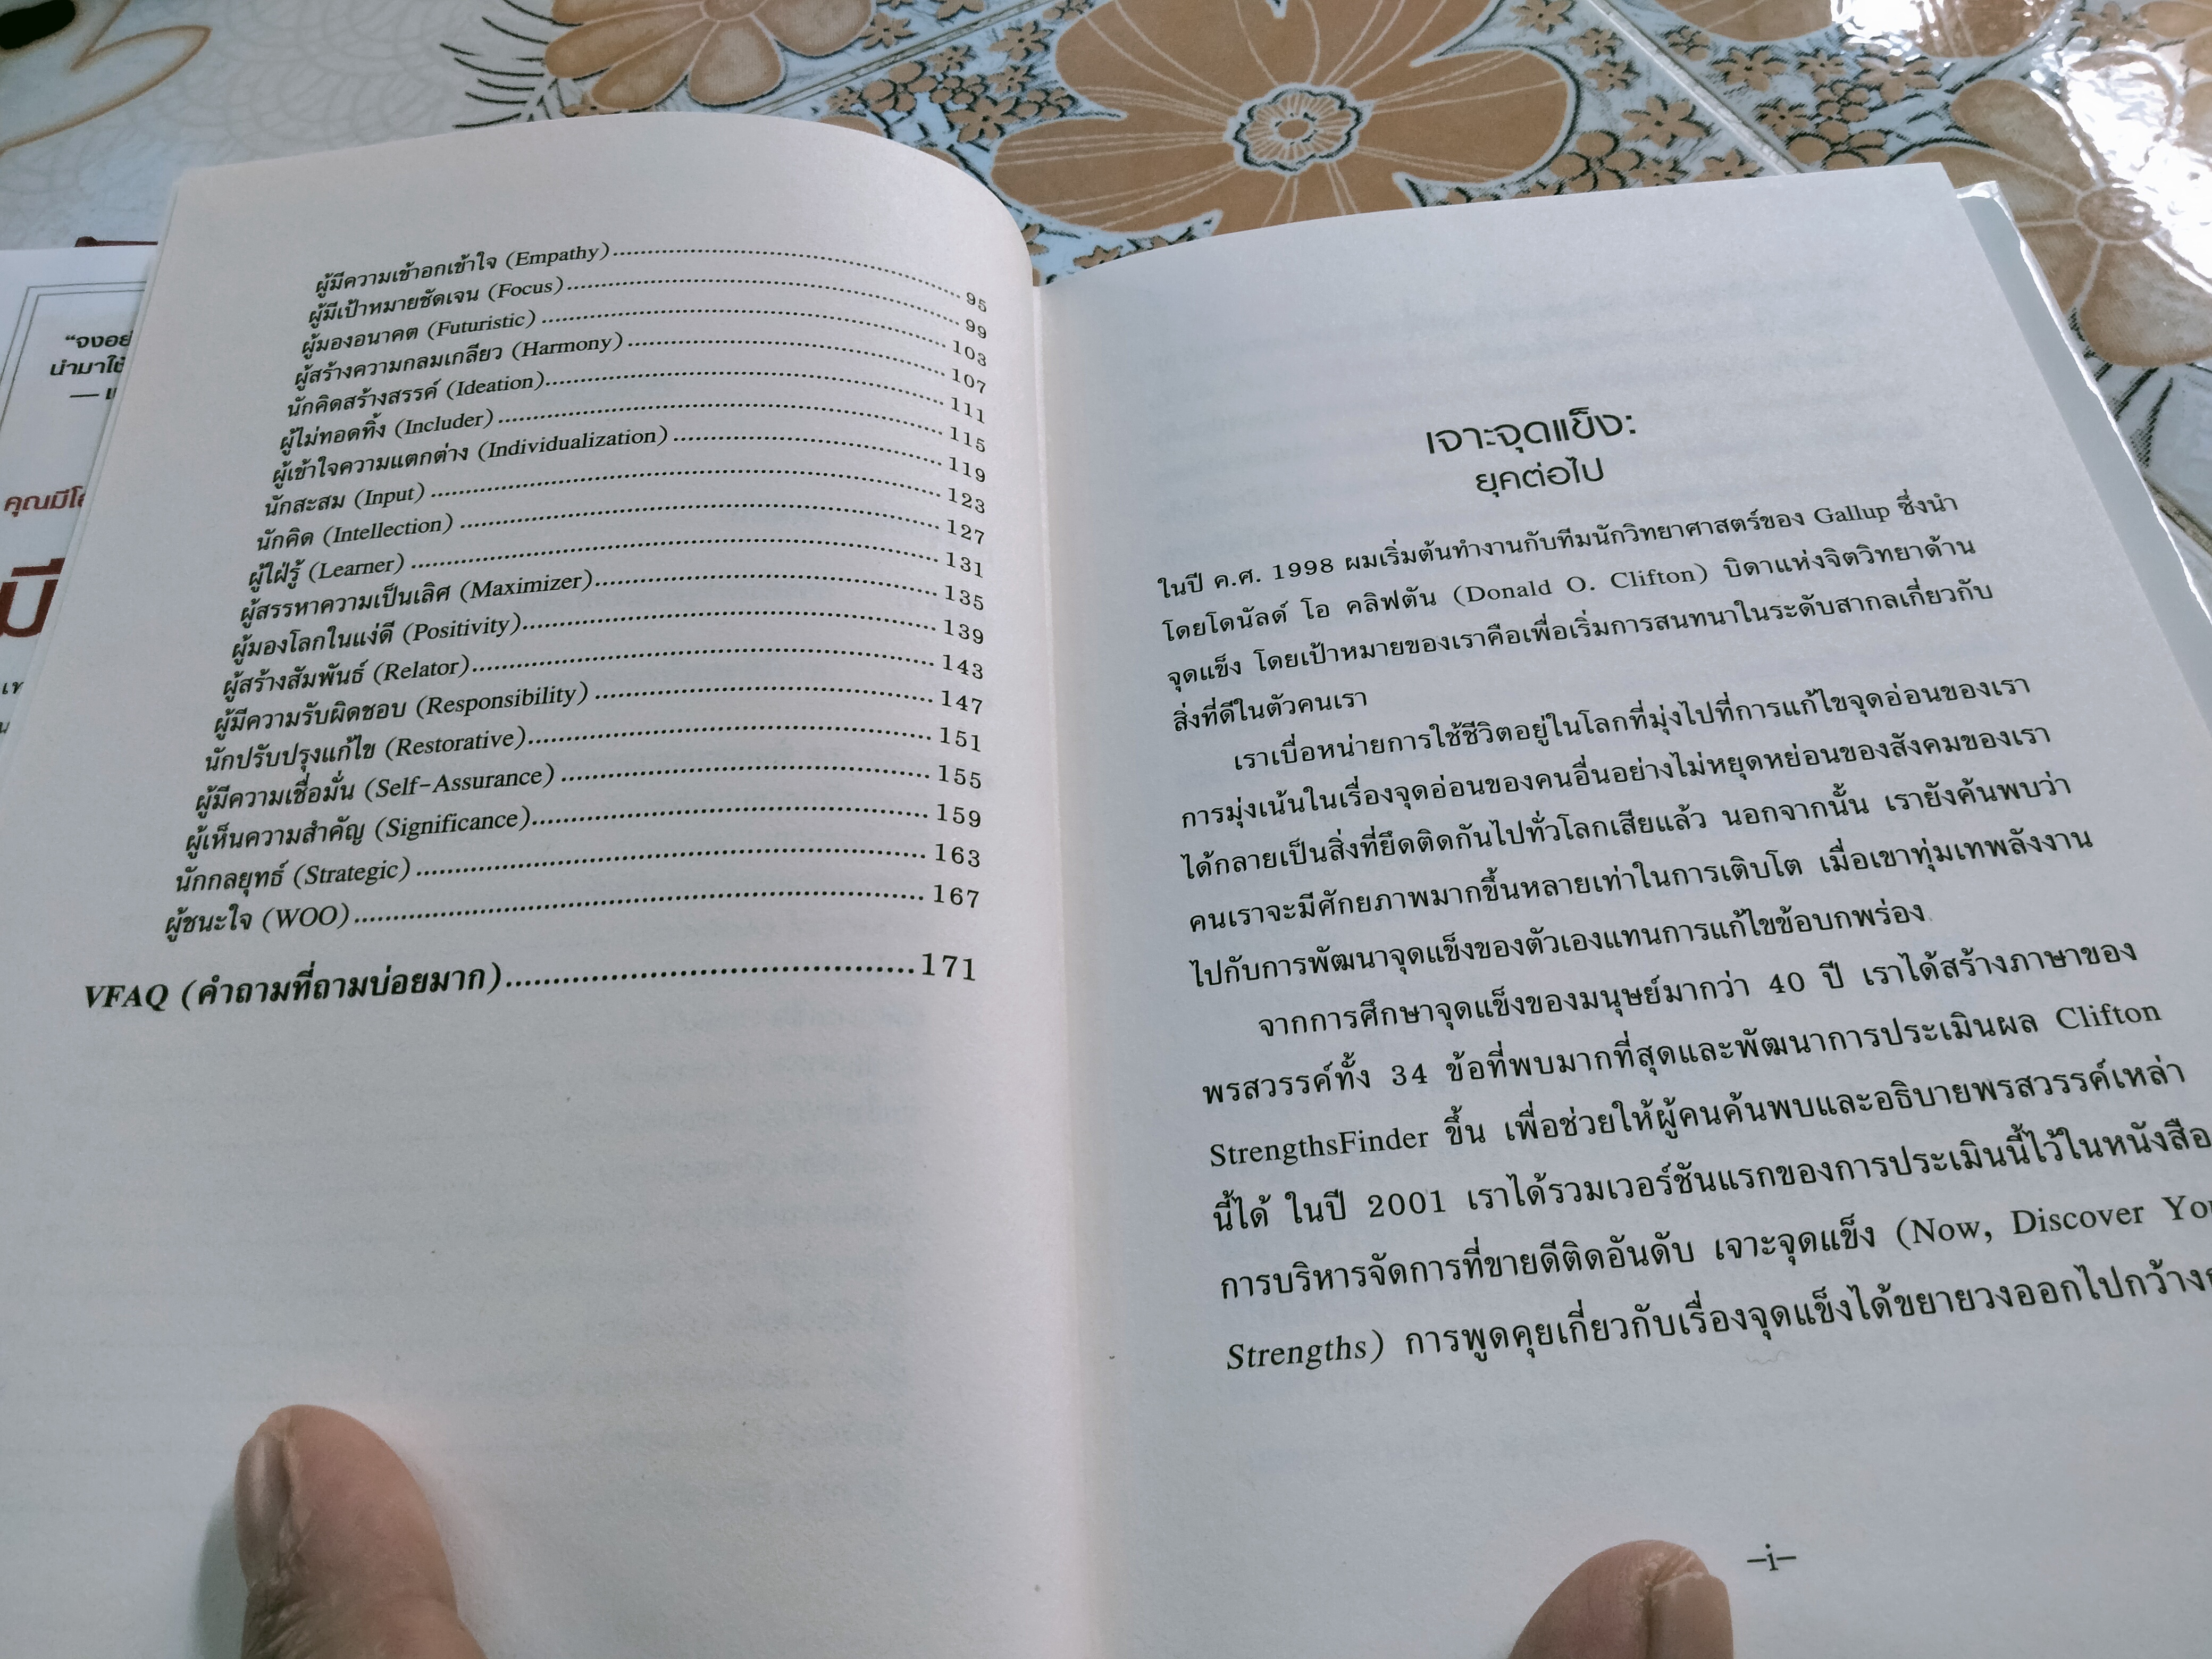 “จงอย่
นำมาใช้
คุณมีโ
มี
ผู้มีความเข้าอกเข้าใจ (Empathy)........................................................ 95
ผู้มีเป้าหมายชัดเจน (Focus)........................................................ 99
ผู้มองอนาคต (Futuristic) ........................................................ 103
ผู้สร้างความกลมเกลียว (Harmony) ........................................................ 107
นักคิดสร้างสรรค์ (Ideation)........................................................ 111
ผู้ไม่ทอดทิ้ง (Includer) ........................................................ 115
ผู้เข้าใจความแตกต่าง (Individualization) ........................................................ 119
นักสะสม (Input) ........................................................ 123
นักคิด (Intellection) ........................................................ 127
ผู้ใฝ่รู้ (Learner) ........................................................ 131
ผู้สรรหาความเป็นเลิศ (Maximizer)........................................................ 135
ผู้มองโลกในแง่ดี (Positivity)........................................................ 139
ผู้สร้างสัมพันธ์ (Relator)........................................................ 143
ผู้มีความรับผิดชอบ (Responsibility) ........................................................ 147
นักปรับปรุงแก้ไข (Restorative)........................................................ 151
ผู้มีความเชื่อมั่น (Self-Assurance) ........................................................ 155
ผู้เห็นความสำคัญ (Significance)........................................................ 159
นักกลยุทธ์ (Strategic) ........................................................ 163
ผู้ชนะใจ (WOO)........................................................ 167
VFAQ (คำถามที่ถามบ่อยมาก)........................................171
เจาะจุดแข็ง:
ยุคต่อไป
ในปี ค.ศ. 1998 ผมเริ่มต้นทำงานกับทีมนักวิทยาศาสตร์ของ Gallup ซึ่งนำ
โดยโดนัลด์ โอ คลิฟตัน (Donald O. Clifton) บิดาแห่งจิตวิทยาด้าน
จุดแข็ง โดยเป้าหมายของเราคือเพื่อเริ่มการสนทนาในระดับสากลเกี่ยวกับ
สิ่งที่ดีในตัวคนเรา
เราเบื่อหน่ายการใช้ชีวิตอยู่ในโลกที่มุ่งไปที่การแก้ไขจุดอ่อนของเรา
การมุ่งเน้นในเรื่องจุดอ่อนของคนอื่นอย่างไม่หยุดหย่อนของสังคมของเรา
ได้กลายเป็นสิ่งที่ยึดติดกันไปทั่วโลกเสียแล้ว นอกจากนั้น เรายังค้นพบว่า
คนเราจะมีศักยภาพมากขึ้นหลายเท่าในการเติบโต เมื่อเขาทุ่มเทพลังงาน
ไปกับการพัฒนาจุดแข็งของตัวเองแทนการแก้ไขข้อบกพร่อง
จากการศึกษาจุดแข็งของมนุษย์มากว่า 40 ปี เราได้สร้างภาษาของ
พรสวรรค์ทั้ง 34 ข้อที่พบมากที่สุดและพัฒนาการประเมินผล Clifton
StrengthsFinder ขึ้น เพื่อช่วยให้ผู้คนค้นพบและอธิบายพรสวรรค์เหล่า
นี้ได้ ในปี 2001 เราได้รวมเวอร์ชันแรกของการประเมินนี้ไว้ในหนังสือ
การบริหารจัดการที่ขายดีติดอันดับ เจาะจุดแข็ง (Now, Discover You
Strengths) การพูดคุยเกี่ยวกับเรื่องจุดแข็งได้ขยายวงออกไปกว้าง
–i–